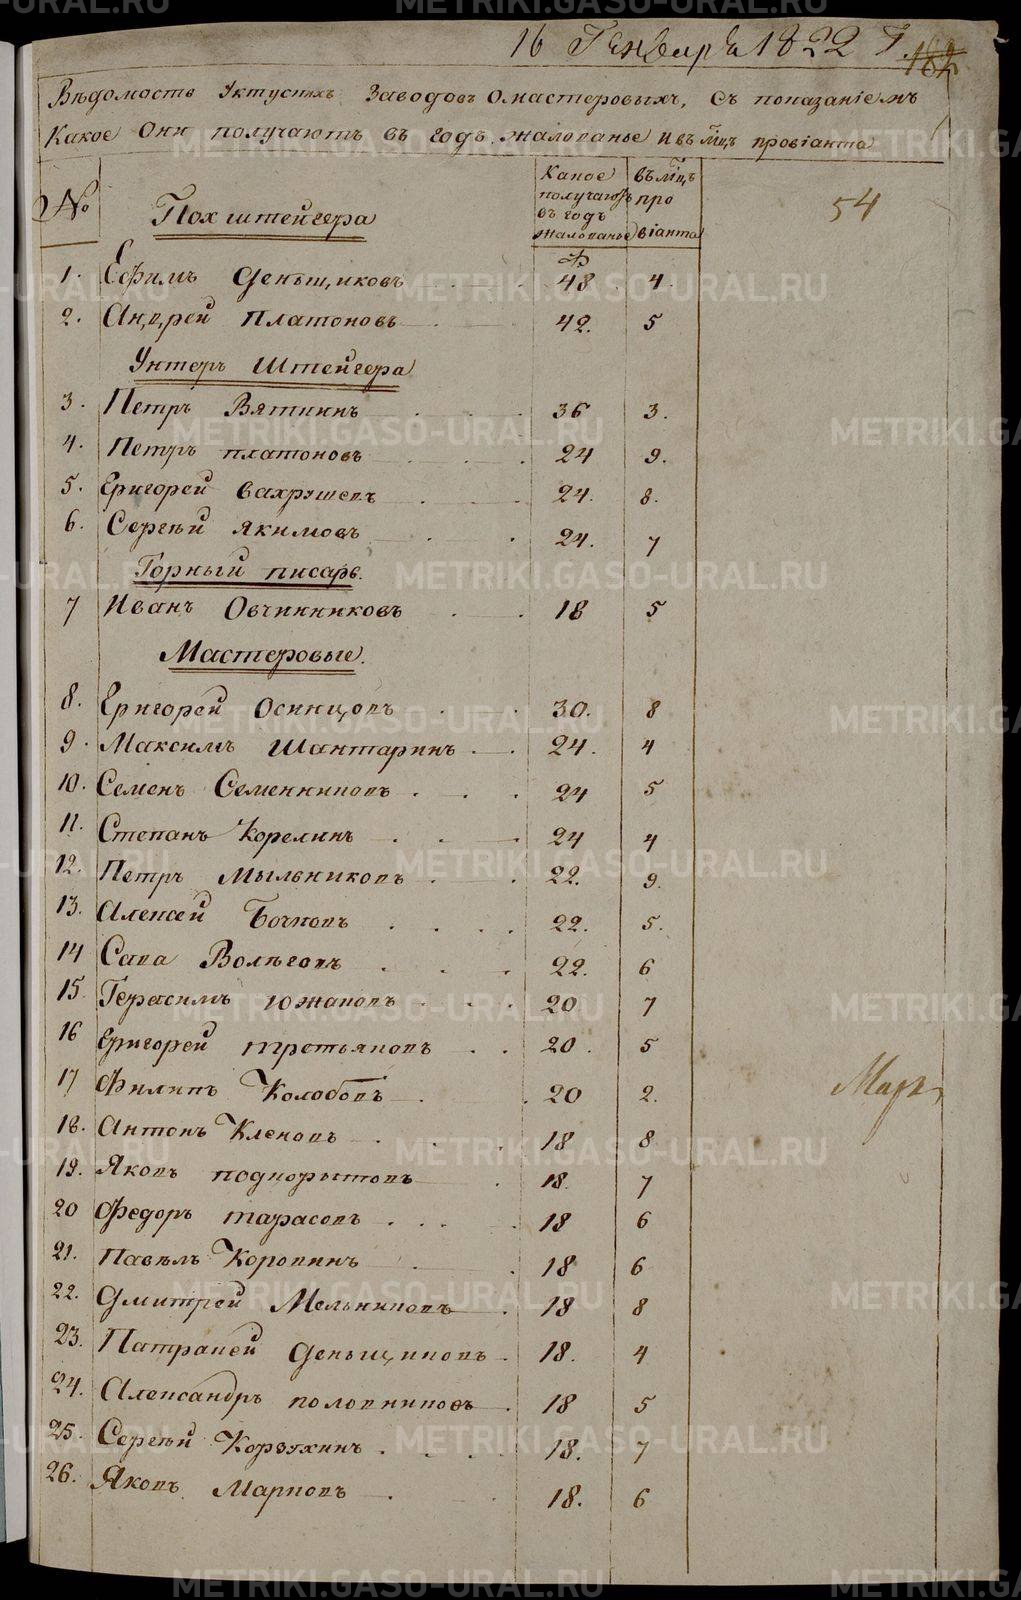 16 Генваря 1822 Г.
162
Вѣдомость Уктускихъ Заводовъ О мастеровыхъ, съ показаніемъ
Какое Они получаютъ въ годъ жалованье И въ мцъ провіанта
№
Пох штейгера
Какое получаютъ въ годъ жалованье
въ мцъ про віанта
54
1. Ефимъ Деньщиковъ 48. 4.
2. Андрей Платоновъ 42. 5
Унтеръ Штейгера
3. Петръ Вяткинъ 36 3.
4. Петръ платоновъ 24 9.
5. Григорей Вахрушевъ 24. 8.
6. Сергѣй Якимовъ 24. 7
Горный писарь.
7 Иванъ Овчинниковъ 18 5
Мастеровые.
8. Григорей Осинцовъ 30. 8
9. Максимъ Шантаринъ 24. 4
10. Семенъ Семенниковъ 24 5
11. Степанъ Корелинъ 24 4
12. Петръ Мыльниковъ 22. 9.
13. Алексей Бочковъ 22. 5.
14 Сава Волѣговъ 22. 6
15. Герасимъ Южаковъ 20 7
16 Григорей третьяковъ 20. 5
17 Филипъ Колобовъ 20 2.
18. Антонъ Кленовъ 18 8
19. Яковъ подкорытовъ 18. 7
20 Федоръ тарасовъ 18 6
21. Павѣлъ Коровинъ 18 6
22. Дмитрей Мельниковъ 18 8
23. Патракей Деньщиковъ 18. 4
24. Александръ половниковъ 18 5
25. Сергѣй Корзухинъ 18. 7
26. Яковъ Марковъ 18. 6
METRIKI.GASO-URAL.RU